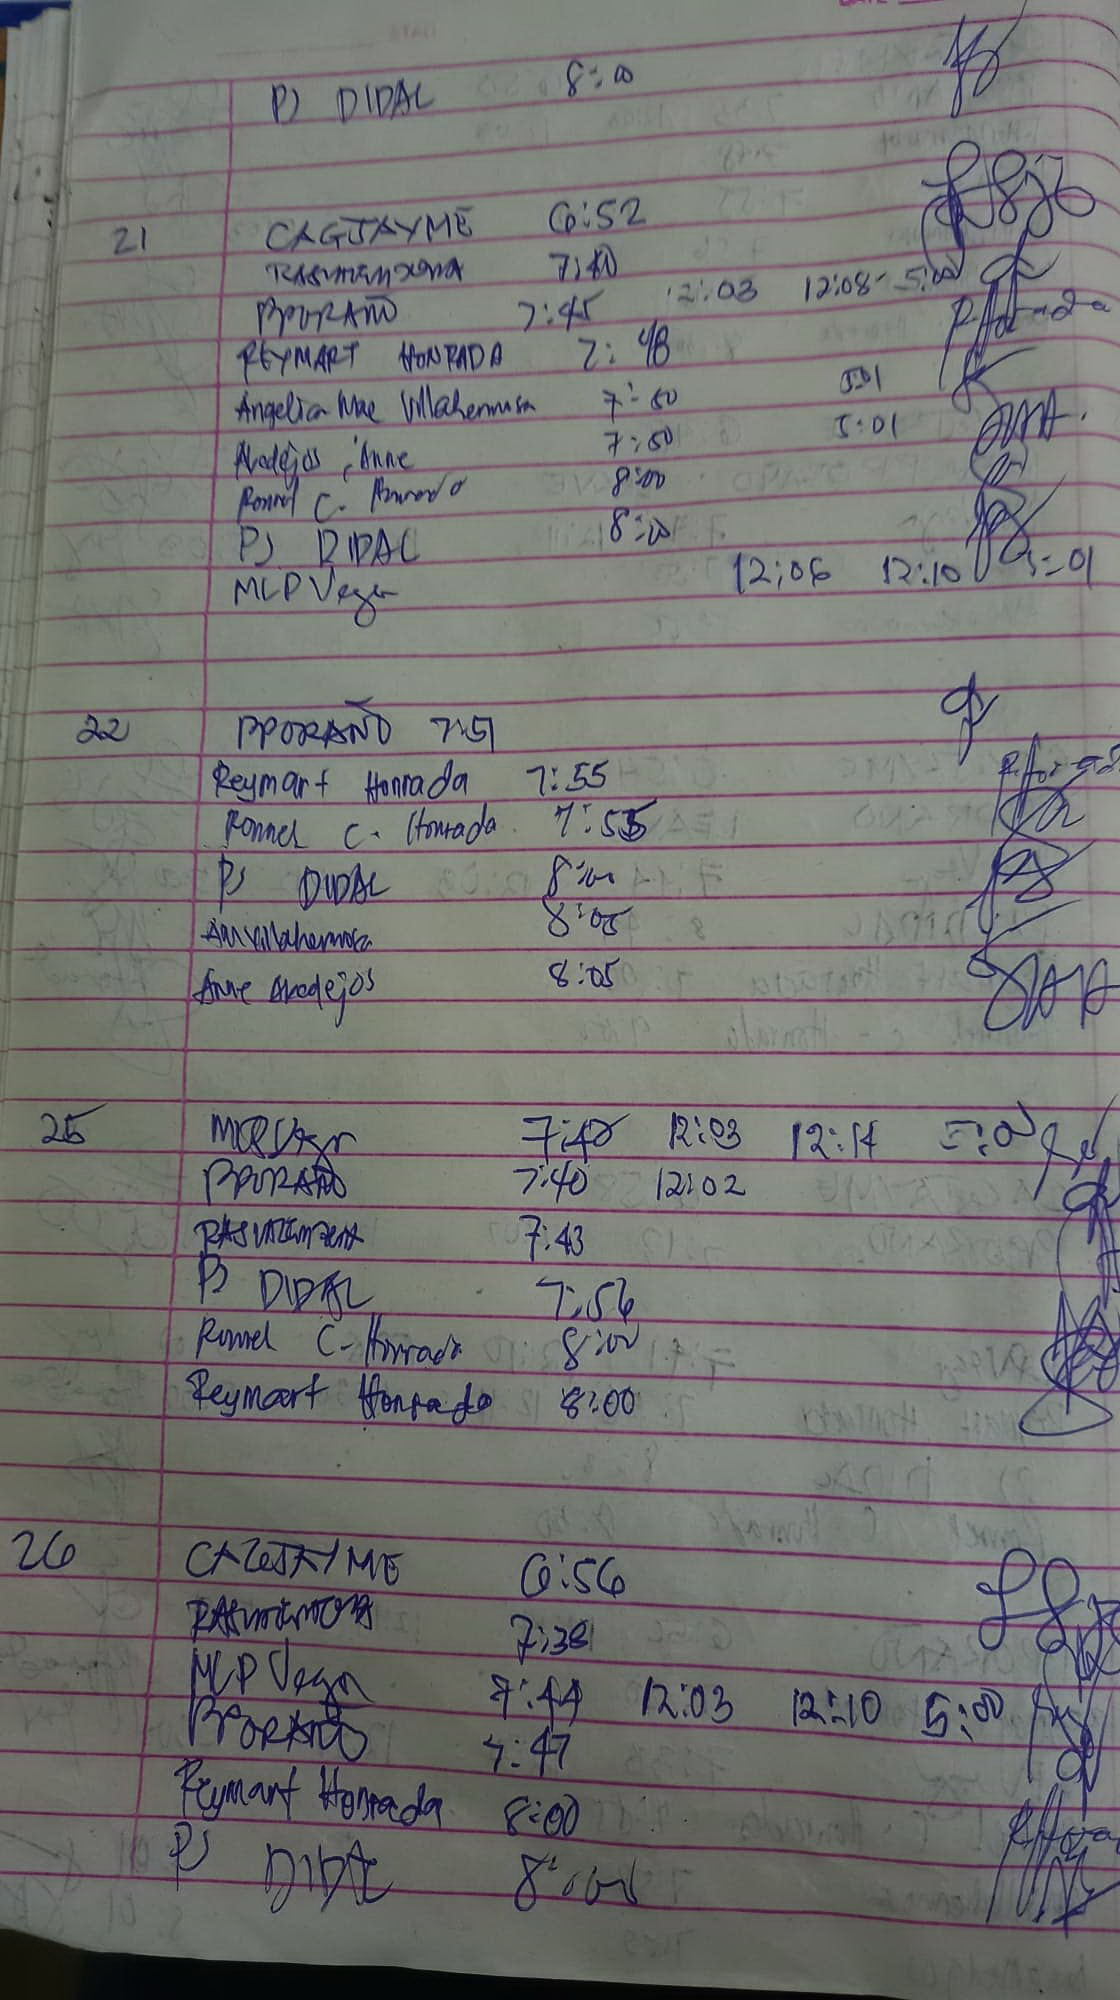 DATE
PJ DIDAL 8:00
21 CAGJAYME 6:52
7:40
BPORAÑO 7:45 12:03 12:08 5:00
REYMART HONRADA 7:48
Angelica Mae Villahermosa 7:50 5:01
Abadejos, Anne 7:50 5:01
Ronnel C. Honrada 8:00
PJ DIDAL 8:00
MLP Vega 12:06 12:10 5:01
22 BPORAÑO 7:51
Reymart Honrada 7:55
Ronnel C. Honrada 7:55
PJ DIDAL 8:00
AMVillahermosa 8:05
Anne Abadejos 8:05
25 MLP Vega 7:40 12:03 12:14 5:00
BPORAÑO 7:40 12:02
7:43
PJ DIDAL 7:56
Ronnel C. Honrada 8:00
Reymart Honrada 8:00
26 CAGJAYME 6:56
7:38
MLP Vega 7:44 12:03 12:10 5:00
BPORAÑO 7:47
Reymart Honrada 8:00
PJ DIDAL 8:00